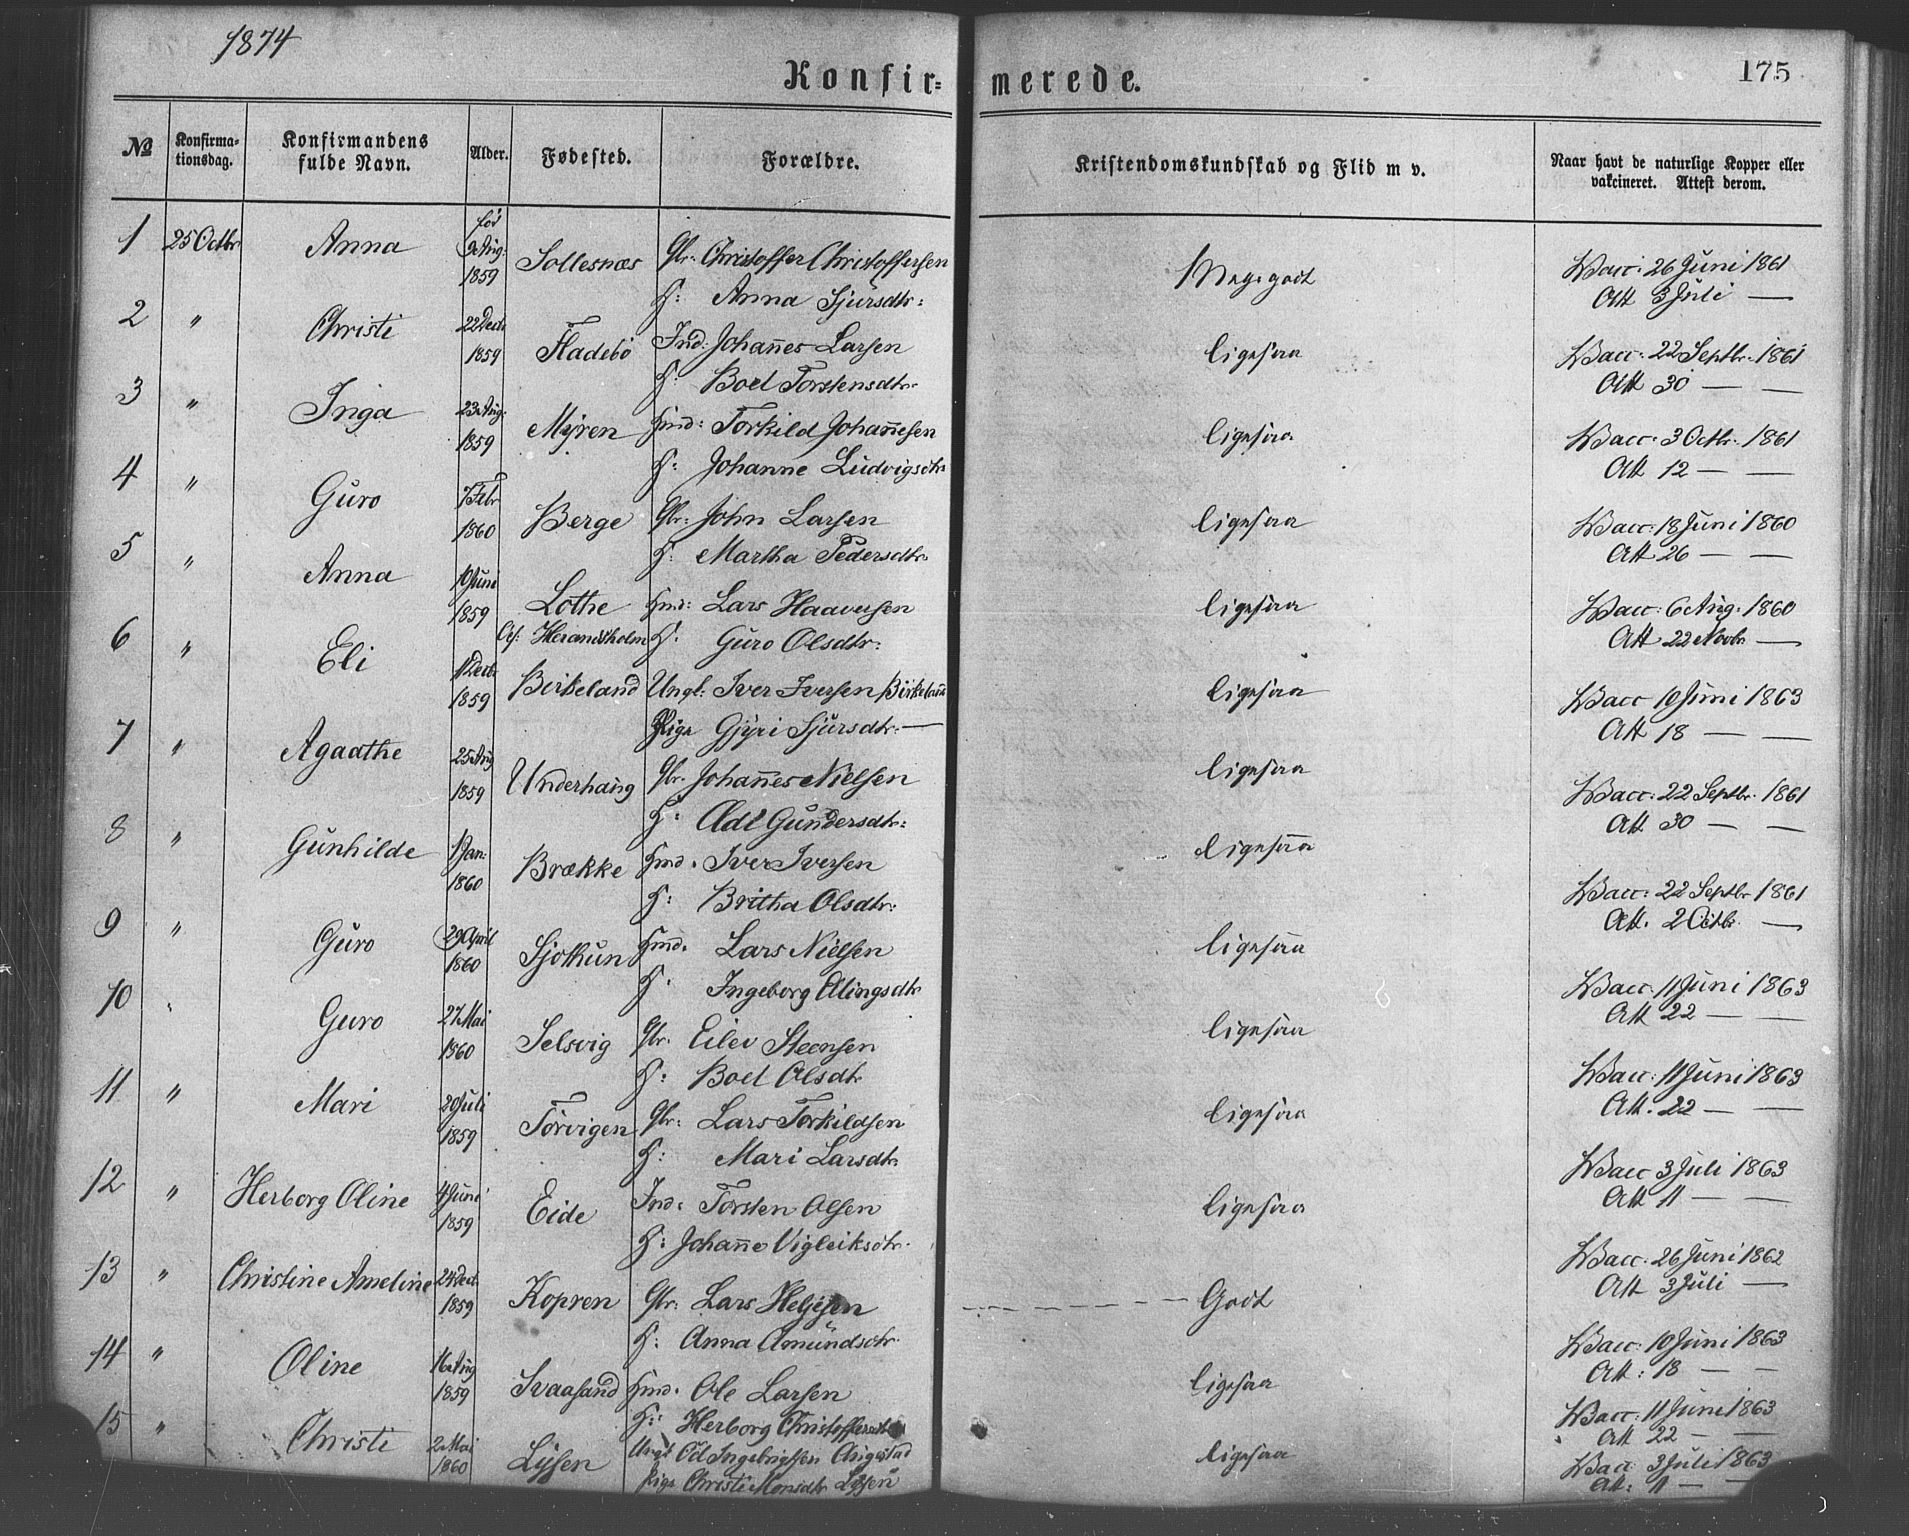 1874
Konfir=
merede.
175
No
Konfirma-
tionsdag.
Konfirmandens
fulde Navn.
Alder.
Fødested.
Forældre.
Kristendomskundskab og Flid m v.
Naar havt de naturlige Kopper eller
vakcineret. Attest derom.
1 25 Octbr Anna fød 9 Aug: 1859 Sollesnæs Gbr: Christoffer Christoffersen Megegodt Vacc: 26 Juni 1861
H: Anna Sjursdtr: Att 3 Juli —
2 " Christi 22 Decb 1859 Fladebø Ind: Johañes Larsen ligesaa Vacc: 22 Septbr. 1861
H: Boel Torstensdtr. Att 30 — —
3 " Inga 23 Aug: 1859 Myren Hmd: Torkild Johañesen ligesaa Vacc. 3 Octbr. 1861
H: Johanne Ludvigsdtr Att 12 — —
4 " Guro 7 Febr 1860 Berge Gbr: John Larsen ligesaa Vacc: 18 Juni 1860
H: Martha Pedersdtr. Att 26 — —
5 " Anna 10 Juni 1859 Lothe Hmd: Lars Haaversen ligesaa Vacc: 6 Aug. 1860
Herandsholm H. Guro Olsdtr: Att 22 Novbr —
6 " Eli 1 Decb. 1859 Birkeland Ungk: Iver Iversen Birkeland ligesaa Vacc 10 Juni 1863
Pige Gjyri Sjursdtr. — Att 18 — —
7 " Agaathe 25 Aug 1859 Underhaug Gbr. Johañes Nielsen ligesaa Vacc: 22 Septbr. 1861
H: Adl Gundersdtr: Att 30 — —
8 " Gunhilde 1 Jan: 1860 Brække Hmd. Iver Iversen ligesaa Vacc: 22 Septbr 1861
H: Britha Olsdtr: Att. 2 Octbr. —
9 " Guro 29 April 1860 Sjotkun Hmd. Lars Nielsen ligesaa Vacc: 11 Juni 1863
H. Ingeborg Elingsdtr Att 22 — —
10 " Guro 27 Mai 1860 Selsvig Gbr. Eilev Steensen ligesaa Vacc: 11 Juni 1863
H: Boel Olsdtr Att. 22 — —
11 " Mari 20 Juli 1859 Törvigen Gbr: Lars Torkildsen ligesaa Vacc 3 Juli 1863
H: Mari Larsdtr. Att 11 — —
12 " Herborg Oline 4 Juni 1859 Eide Ind: Torsten Olsen ligesaa Vacc. 26 Juni 1862
H: Johañe Vigleiksdtr. Att 3 Juli —
13 " Christine Ameline 24 Decb. 1859 Kopren Gbr: Lars Heljesen Godt Vacc: 10 Juni 1863
H: Anna Amundsdtr. Att: 18 — —
14 " Oline 16 Aug 1859 Svaasand Hmd. Ole Larsen ligesaa Vacc: 11 Juni 1863
H: Herborg Christoffersdtr Att 22 — —
15 " Christi 2 Mai 1860 Lysen Ungk Od Ingebrigtsen ligesaa Vacc 3 Juli 1863
Pige Christi Monsdtr Lysen Att: 11 — —